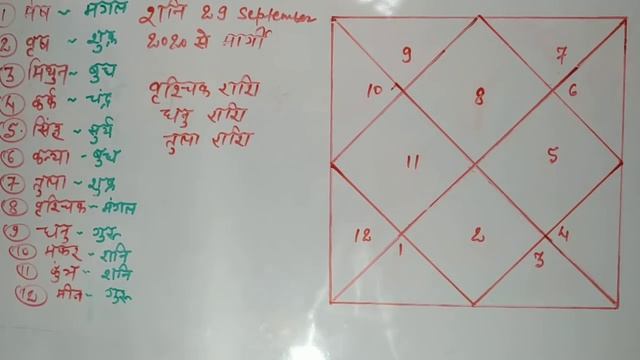 ① मेष ~ मंगल
② वृष ~ शुक्र
③ मिथुन ~ बुध
④ कर्क ~ चंद्र
⑤ सिंह ~ सुर्य
⑥ कन्या ~ बुध
⑦ तुला ~ शुक्र
⑧ वृश्चिक ~ मंगल
⑨ धनु ~ गुरू
⑩ मकर ~ शनि
⑪ कुंभ ~ शनि
⑫ मीन ~ गुरू
शनि 29 September
2020 से मार्गी
वृश्चिक राशि
धनु राशि
तुला राशि
9
7
10
8
6
11
5
12
1
2
4
3